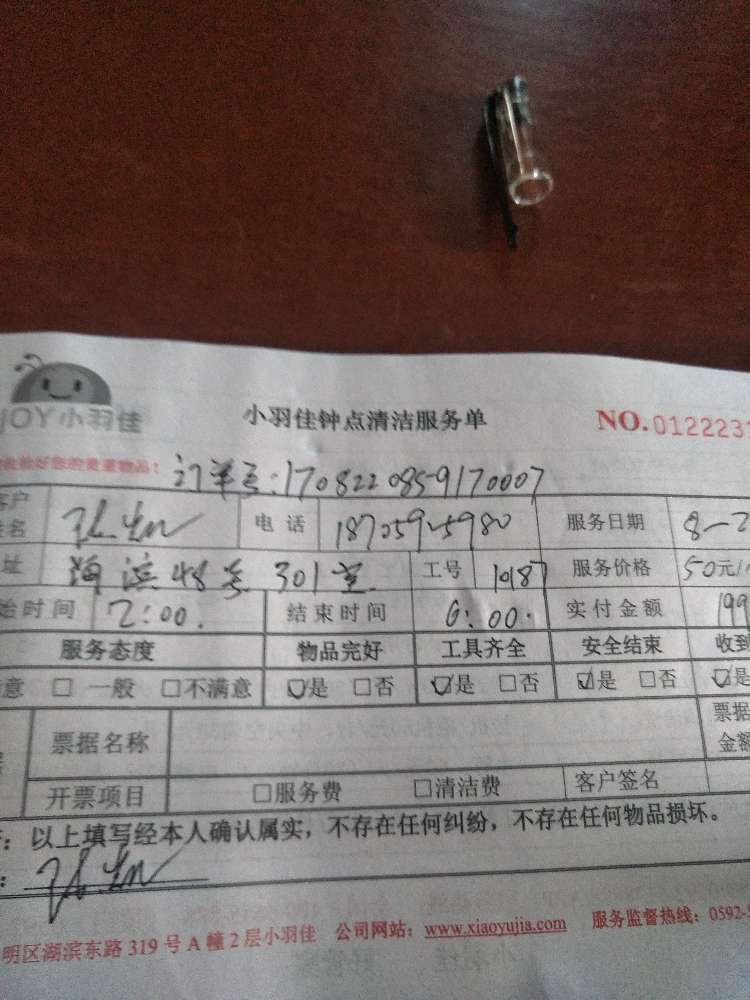 JOY小羽佳
小羽佳钟点清洁服务单
NO.0122231
好您的贵重物品! 订单号:1708220859170007
客户姓名 电话 服务日期 8-2
址 海滨48号301室 工号 10187 服务价格 50元/
始时间 2:00. 结束时间 6:00. 实付金额 199
服务态度 物品完好 工具齐全 安全结束 收到
意 □ 一般 □不满意 ☑是 □否 ☑是 □否 ☑是 □否 ☑是
票据名称 票据金额
开票项目 □服务费 □清洁费 客户签名
:以上填写经本人确认属实,不存在任何纠纷,不存在任何物品损坏。
明区湖滨东路 319 号 A 幢 2 层小羽佳 公司网站:www.xiaoyujia.com 服务监督热线:0592-